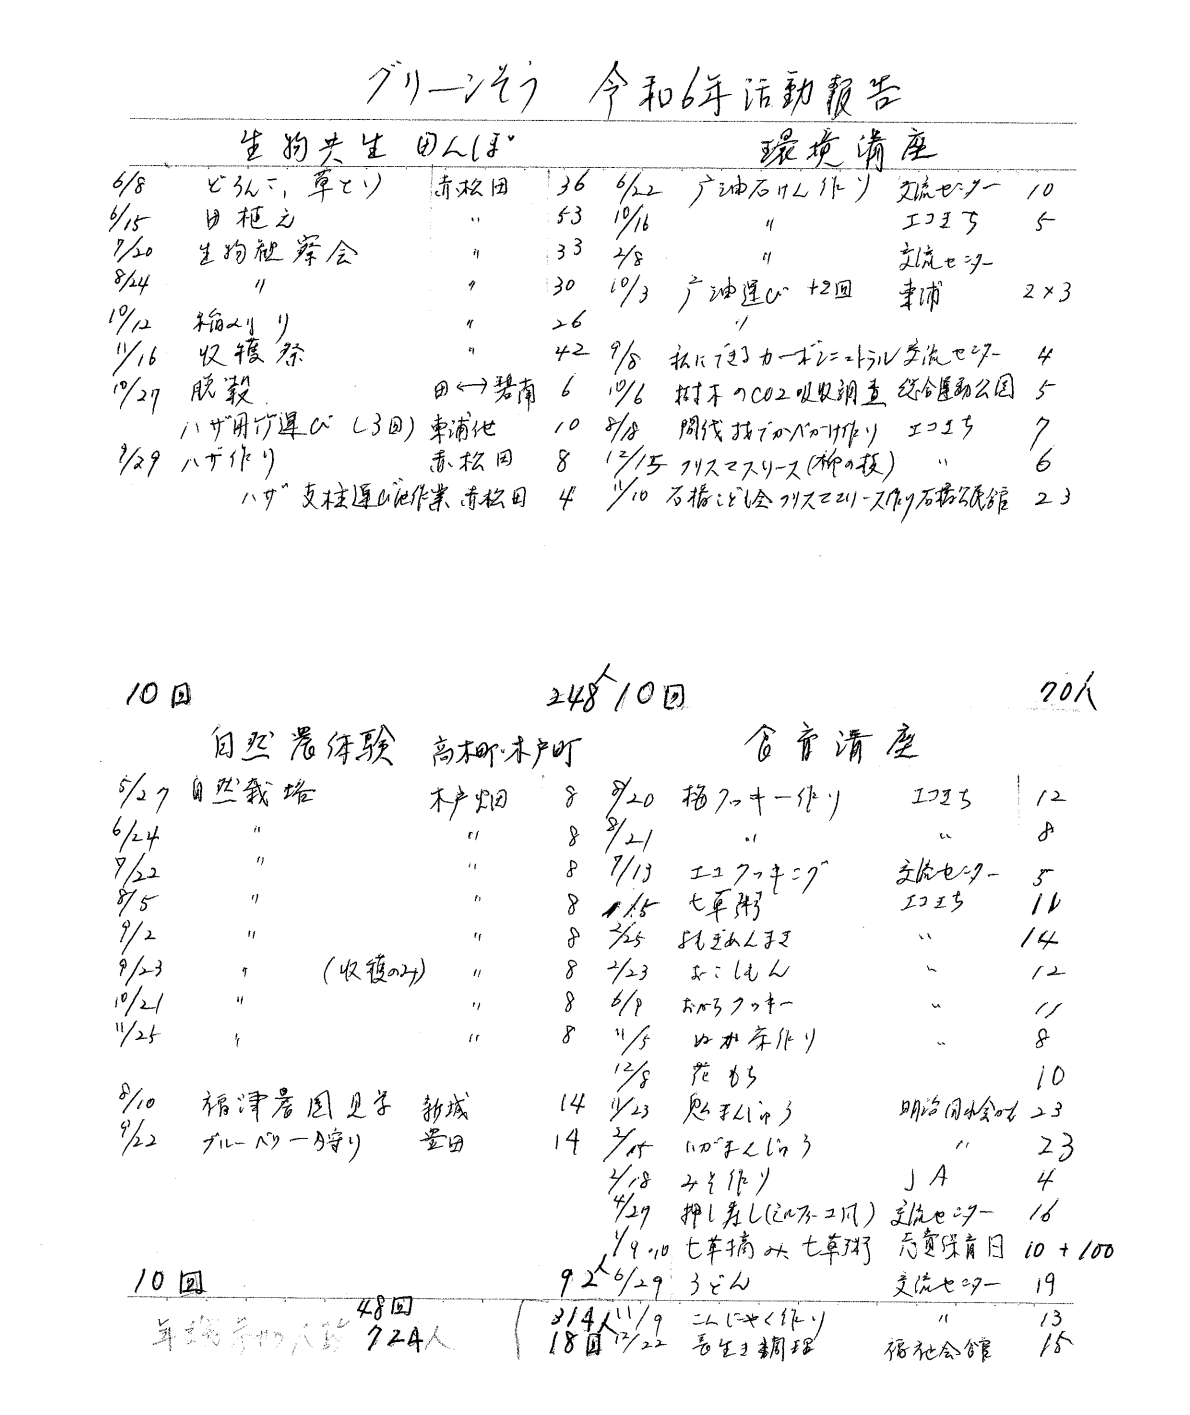 グリーンそう 令和6年活動報告
生物共生 田んぼ 環境講座
6/8 どろんこ,草とり 赤松田 36 6/22 广油石けん作り 交流センター 10
6/15 田植え 〃 53 10/16 〃 エコまち 5
7/20 生物観察会 〃 33 2/8 〃 交流センター
8/24 〃 〃 30 10/3 广油運び +2回 東浦 2×3
10/12 稲刈り 〃 26 〃
11/16 収穫祭 〃 42 9/8 私にできるカーボンニュートラル 交流センター 4
10/27 脱穀 田↔碧南 6 10/6 樹木のCO2吸収調査 総合運動公園 5
ハザ用竹運び(3回) 東浦他 10 8/18 間伐材でかべかけ作り エコまち 7
9/29 ハザ作り 赤松田 8 12/15 クリスマスリース(柳の枝) 〃 6
ハザ支柱運び他作業 赤松田 4 11/10 石橋こども会クリスマスリース作り 石橋公民館 23
10回 248人 10回 70人
自然農体験 高木町・木戸町 食育講座
5/27 自然栽培 木戸畑 8 8/20 梅クッキー作り エコまち 12
6/24 〃 〃 8 8/21 〃 〃 8
7/22 〃 〃 8 7/13 エコクッキング 交流センター 5
8/5 〃 〃 8 1/5 七草粥 エコまち 11
9/2 〃 〃 8 2/25 よもぎあんまき 〃 14
9/23 〃 (収穫のみ) 〃 8 2/23 おこしもん 〃 12
10/21 〃 〃 8 6/9 おからクッキー 〃 11
11/25 〃 〃 8 11/5 ぬか床作り 〃 8
12/8 花もち 10
8/10 福津農園見学 新城 14 11/23 鬼まんじゅう 明治用水会館 23
9/22 ブルーベリー狩り 豊田 14 2/15 いがまんじゅう 〃 23
2/18 みそ作り JA 4
4/29 押し寿し(ミルフィーユ風) 交流センター 16
1/9.10 七草摘み 七草粥 志貴保育園 10+100
10回 92人 6/29 うどん 交流センター 19
48回 314人 11/9 こんにゃく作り 〃 13
724人 18回 12/22 長生き調理 福祉会館 15